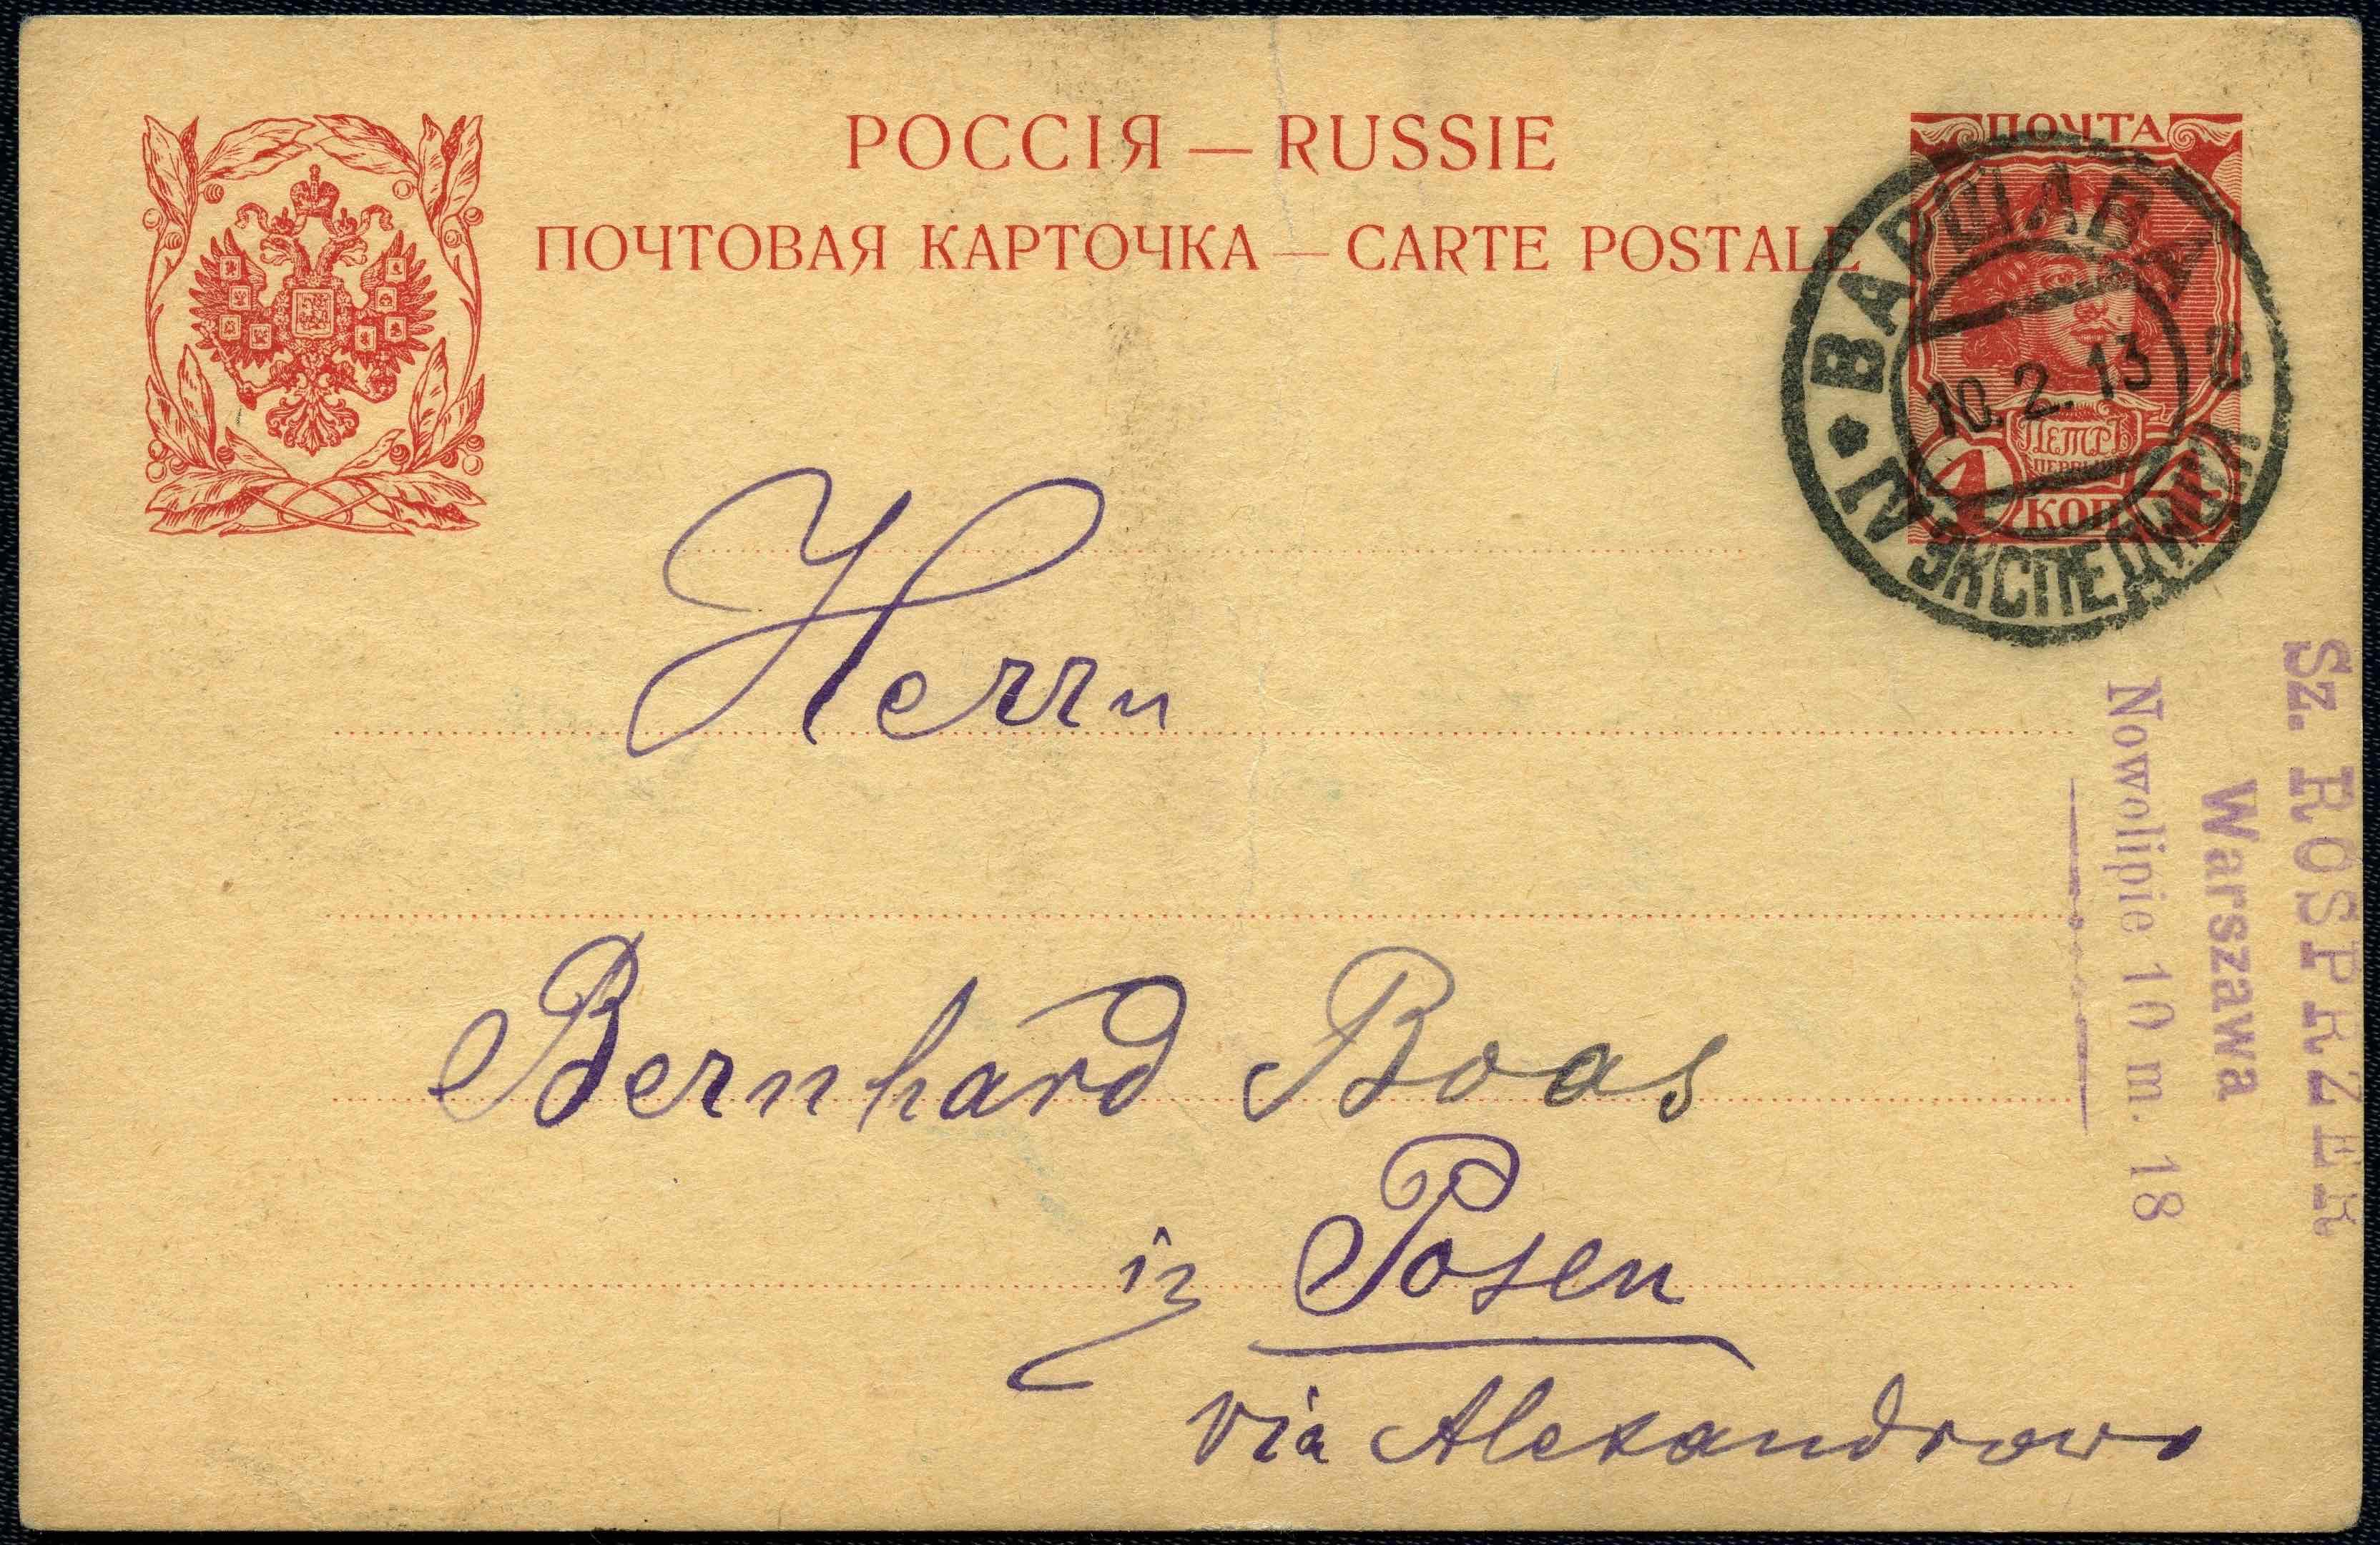 РОССІЯ — RUSSIE
ПОЧТОВАЯ КАРТОЧКА — CARTE POSTALE
ПОЧТА
ПЕТРЪ
ПЕРВЫЙ
4 КОП 4
ВАРШАВА
10.2.13
ЭКСПЕДИЦІЯ
Herrn
Bernhard Boas
in Posen
via Alexandrowo
Sz. ROSPRZEK
Warszawa
Nowolipie 10 m. 18